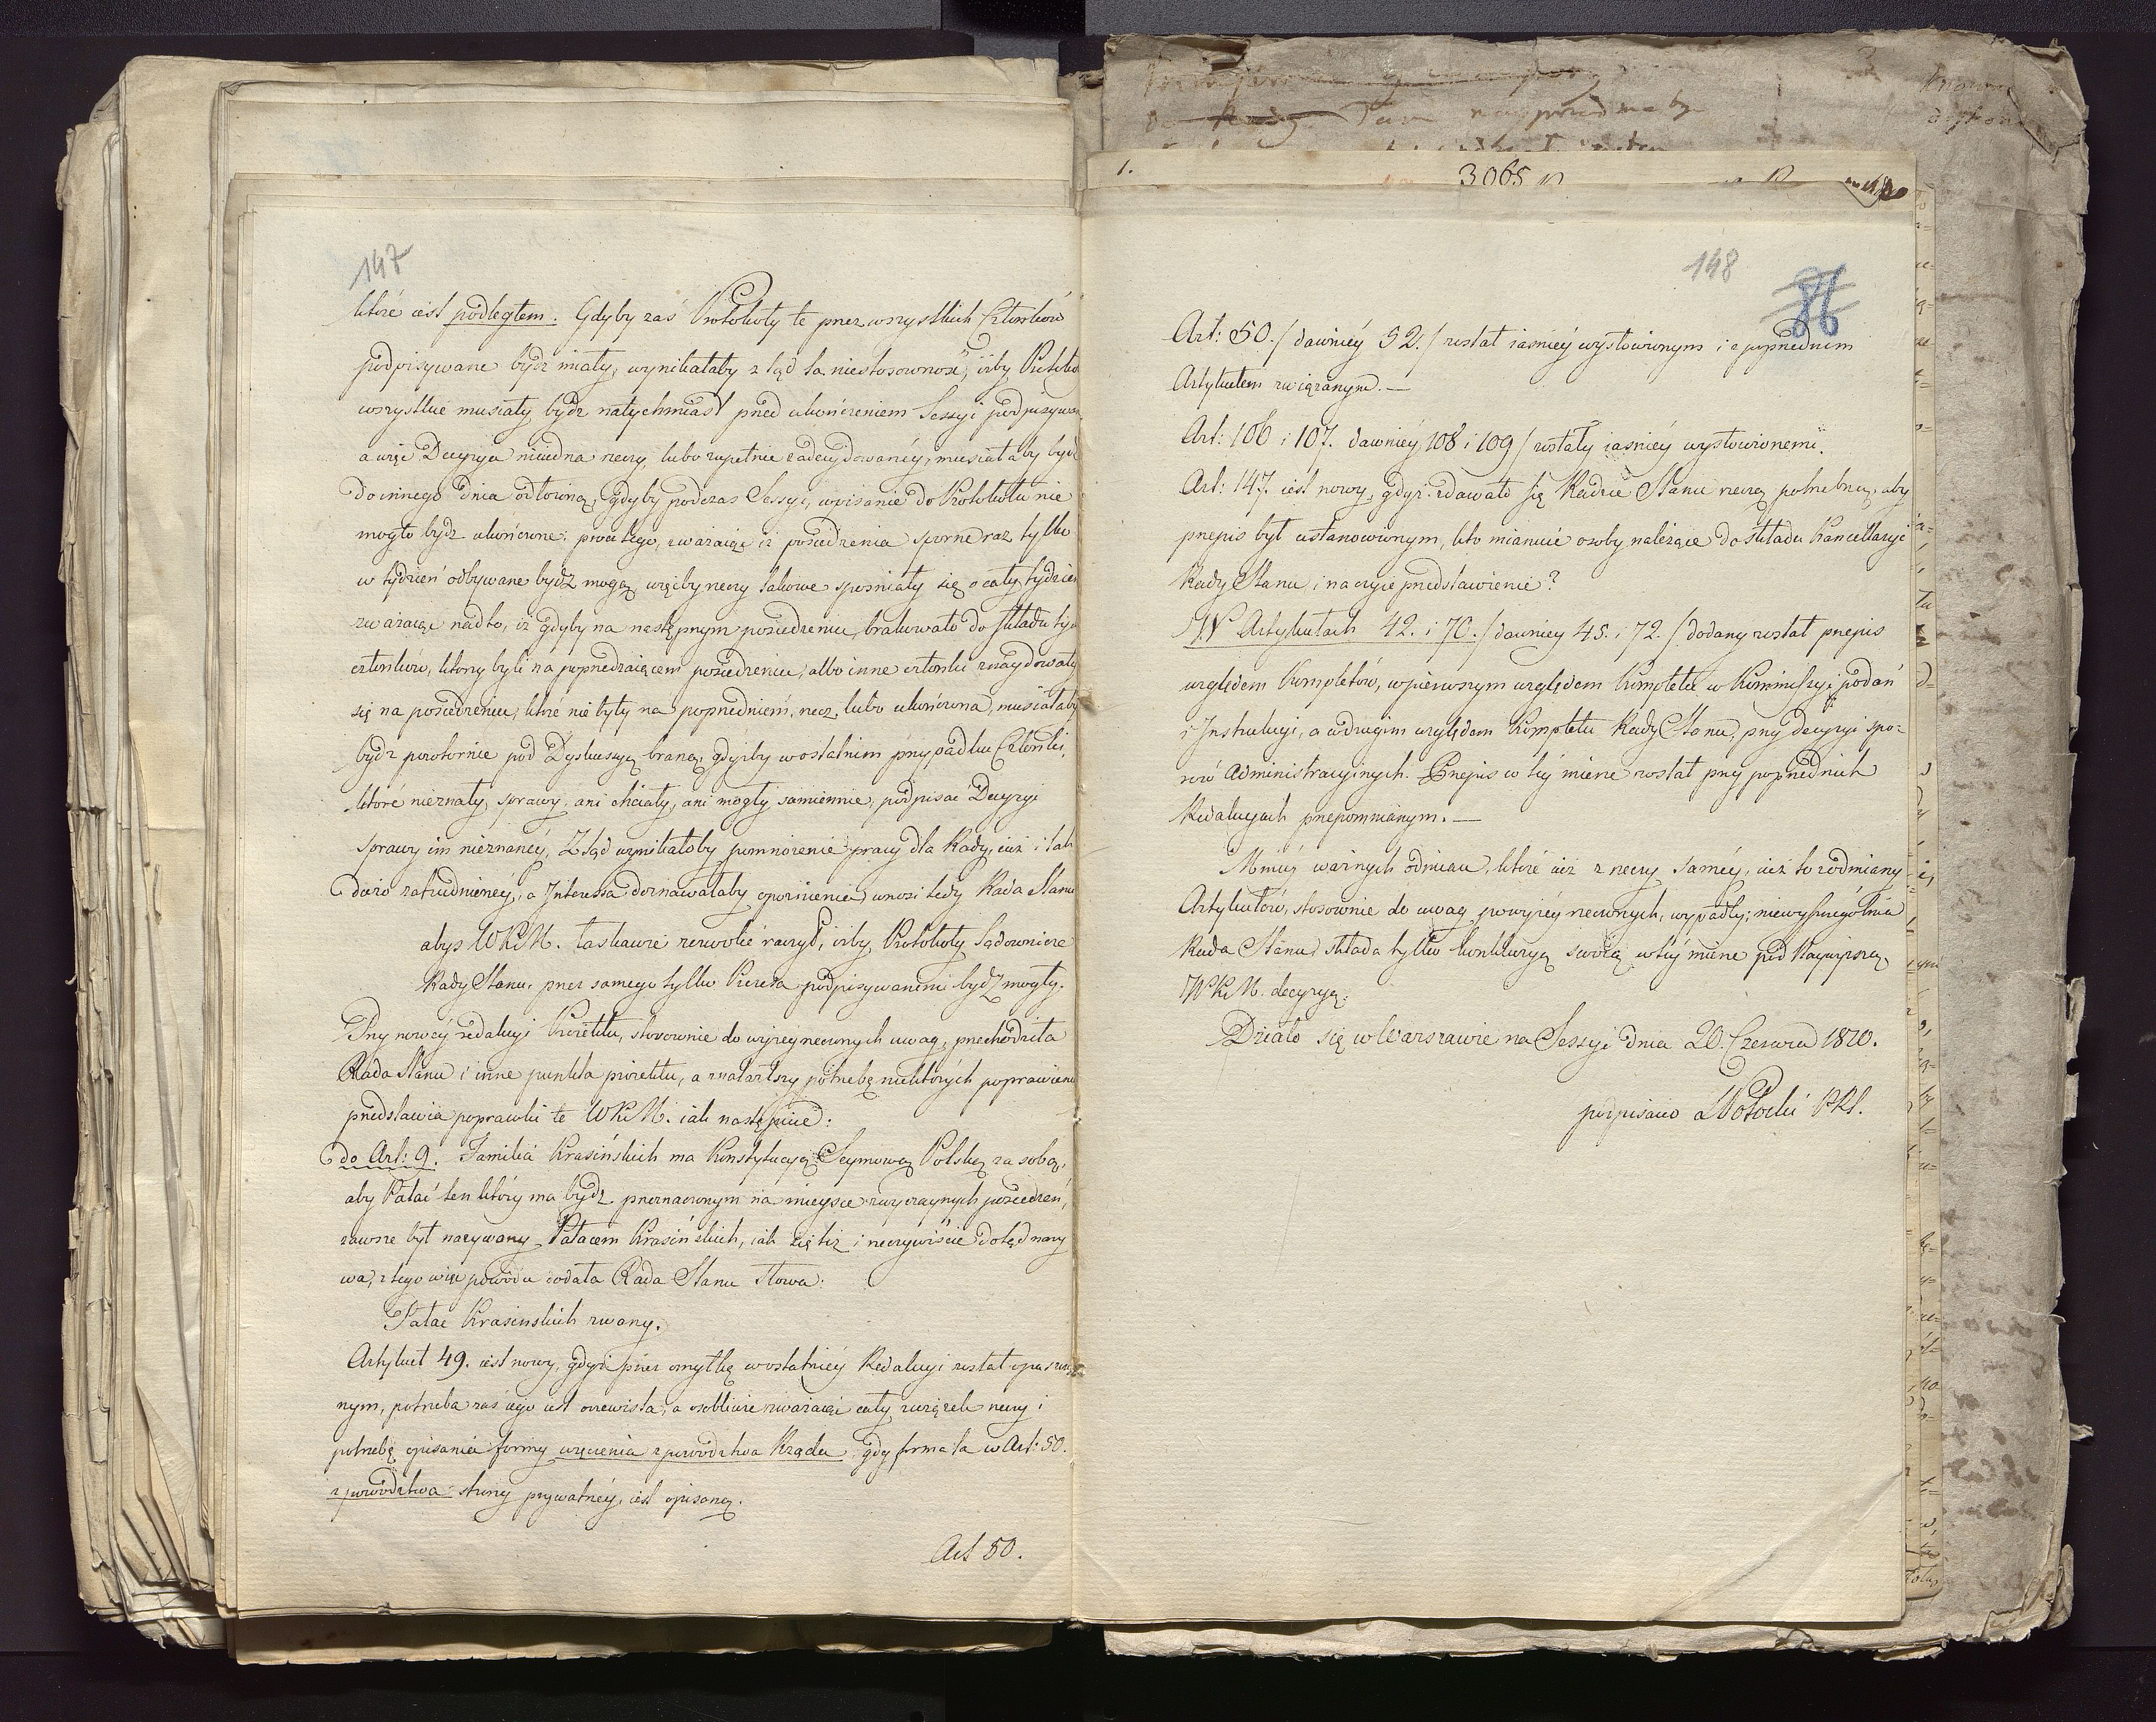 147
które iest podległem. Gdyby zaś Protokoły te przez wszystkich Członków
podpisywane bydz miały, wynikałaby z tąd ta niestosowność, iżby
wszystkie musiały bydz natychmiast przed ukończeniem Sessyi
a więc Decyzya nieiedna rzeczy, lubo zupełnie zadecydowaney, musiałaby bydź
do innego dnia odłożoną, gdyby podczas Sessyi, wpisanie do Protokułu nie
mogło bydz ukończone; prócz tego, zważaiąc iż posiedzenia sporne raz tylko
w tydzień odbywane bydź mogą, więcby rzeczy takowe spóźniały się o cały tydzień
zważaiąc nadto, iż gdyby na następnym posiedzeniu, brakowało do składu tych
członków, którzy byli na poprzedzaiącem posiedzeniu, albo inne członki znaydowały
się na posiedzeniu, które nie były na poprzedniem, rzecz lubo ukończona, musiałaby
bydz powtórnie pod Dyskussyą braną, gdyżby w ostatnim przypadku Członki,
które nieznały sprawy, ani chciały, ani mogły sumiennie, podpisać Decyzyi
sprawy im nieznanéy, Ztąd wynikałoby pomnożenie pracy dla Rady, iuż i tak
dużo zatrudnionéy, a Interessa doznawałyby opóźnienia, wnosi tedy Rada Stanu
abyś WKM. łaskawie zezwolić raczył, iżby Protokoły Sądownicze
Rady Stanu, przez samego tylko Prezesa podpisywanemi bydź mogły.
Przy nowéy redakcyi Proiektu, stosownie do wyżey rzeczonych uwag, przechodziła
Rada Stanu i inne punkta proiektu, a znalazłszy potrzebę niektórych poprawienia
przedstawia poprawki te WKM. iak następuie:
do Art: 9. Familia Krasińskich ma Konstytucyą Seymową Polską za sobą,
aby Pałac ten który ma bydź przeznaczonym na mieysce zwyczaynych posiedzeń,
zawsze był nazywany Pałacem Krasińskich, iak się też i rzeczywiście dotąd nazy
wa, z tego więc powodu dodała Rada Stanu słowa:
Pałac Krasińskich zwany.
Artykuł 49. iest nowy, gdyż przez omyłkę w ostatniéy Redakcyi został opuszczo
nym, potrzeba zaś iego iest oczewista, a osobliwie zważaiąc cały związek rzeczy i
potrzebę opisania formy wręczenia z powództwa Rządu gdy forma ta w Art: 50.
z powództwa strony prywatnéy, iest opisaną.
Art 50.
1.
3065
148
86
Art: 50. / dawniéy 52. / został iaśniéy wysłowionym i z poprzednim
Artykułem związanym. —
Art: 106 i 107. dawniéy 108 i 109 / zostały iaśniéy wysłowionemi.
Art: 147. iest nowy, gdyż zdawało się Radzie Stanu rzeczą potrzebną, aby
przepis był ustanowionym, kto mianuie osoby należące do składu Kancellaryi
Rady Stanu, i na czyie przedstawienie?
W Artykułach 42. i 70. / dawniey 45. i 72. / dodany został przepis
względem Kompletów, w pierwszym względem Kompletu w Kommissyi podań
i Instrukcyi, a w drugim względem Kompletu Rady Stanu, przy decyzyi spo-
rów Administracyinych. Przepis w téy mierze został przy poprzednich
Redakcyach przepomnianym. —
Mniéy ważnych odmian, które iuż z rzeczy saméy, iuż to z odmiany
Artykułów, stosownie do uwag powyżéy rzeczonych, wypadły; niewyszczególnia
Rada Stanu, składa tylko konkluzyą swoią w téy mierze pod Naywyższą
WKM. decyzyą.
Działo się w Warszawie na Sessyi dnia 20. Czerwca 1820.
podpisano Potocki